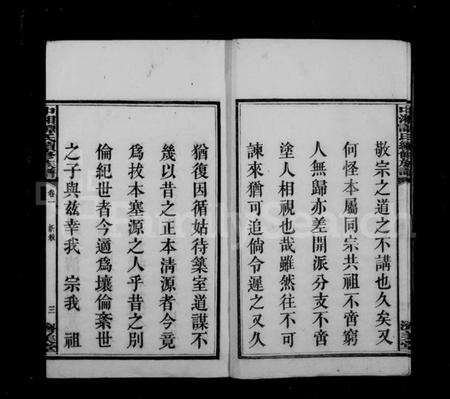 敬宗之道之不講也久矣又
何怪本屬同宗共祖不啻窮
人無歸亦差開派分支不啻
塗人相視也哉雖然往不可
諫來猶可追倘令遲之又久
猶復因循姑待築室道謀不
幾以昔之正本清源者今竟
爲拔本塞源之人乎昔之別
倫紀世者今適爲壞倫紊世
之子與兹幸我 宗我 祖
卷一
三